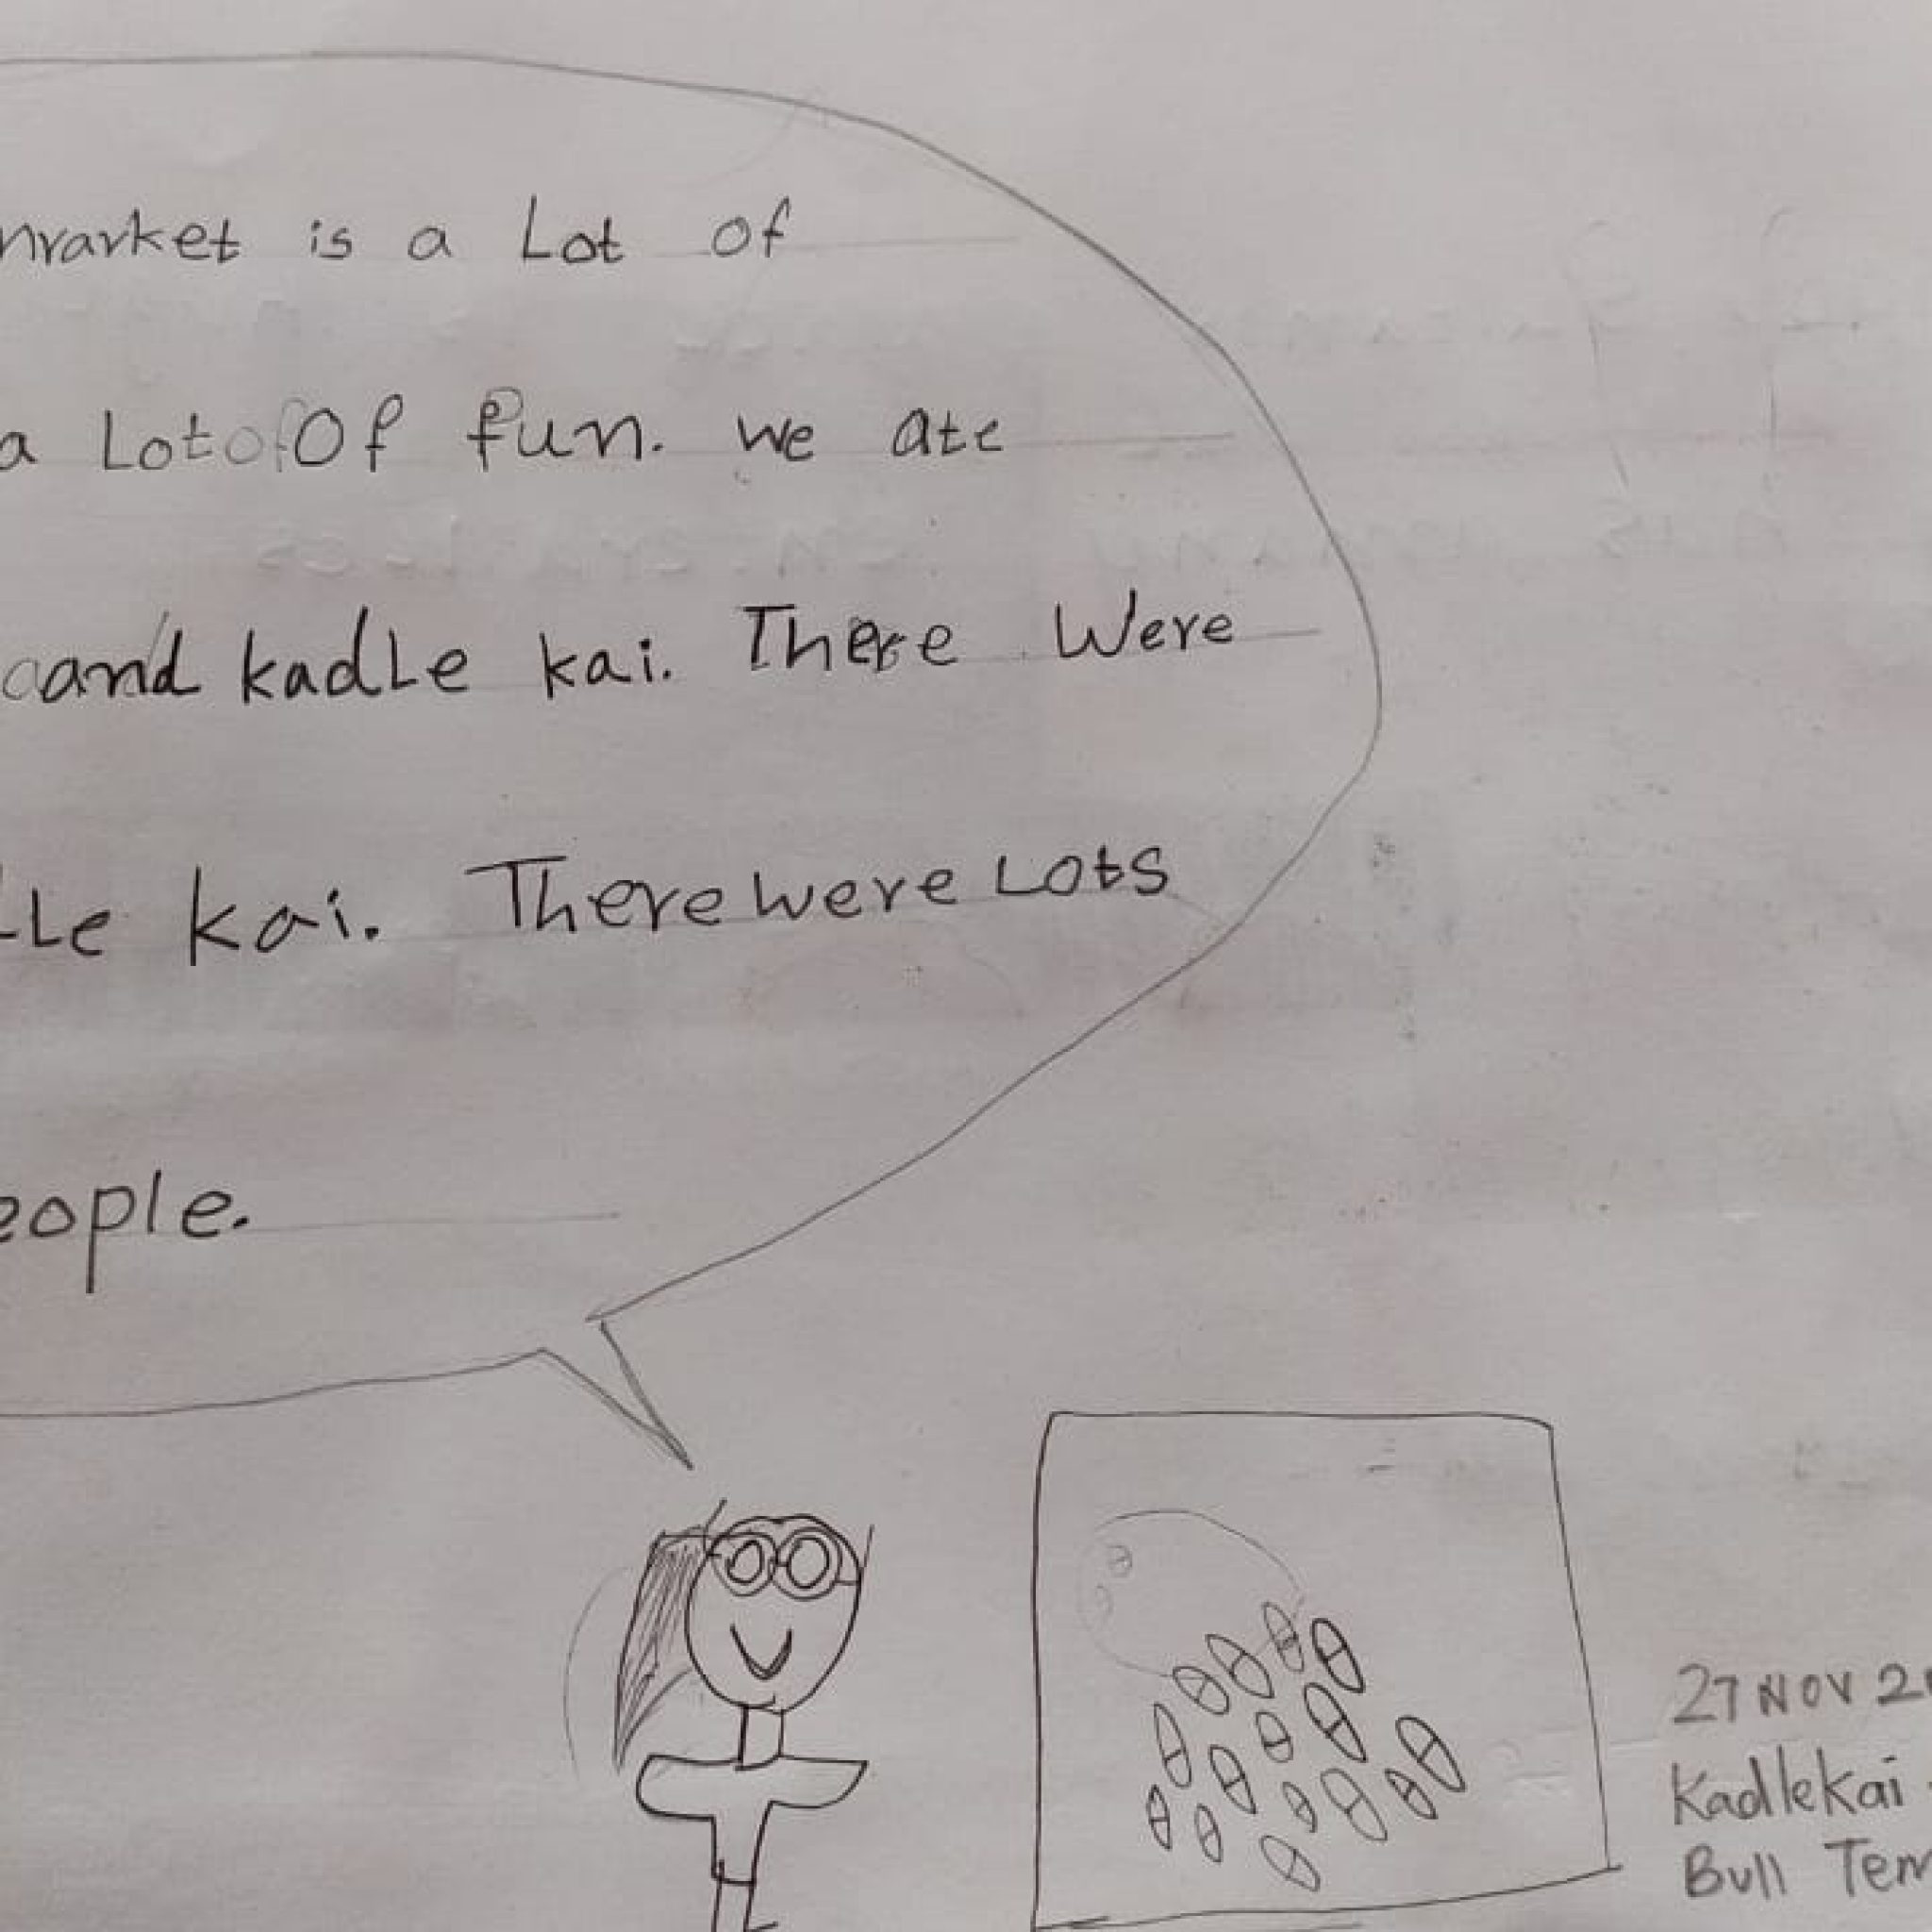 market is a Lot of
a Lot of Of fun. we ate
and kadLe kai. There Were
Le kai. There were Lots
eople.
27 NOV 2
KadleKai
Bull Tem